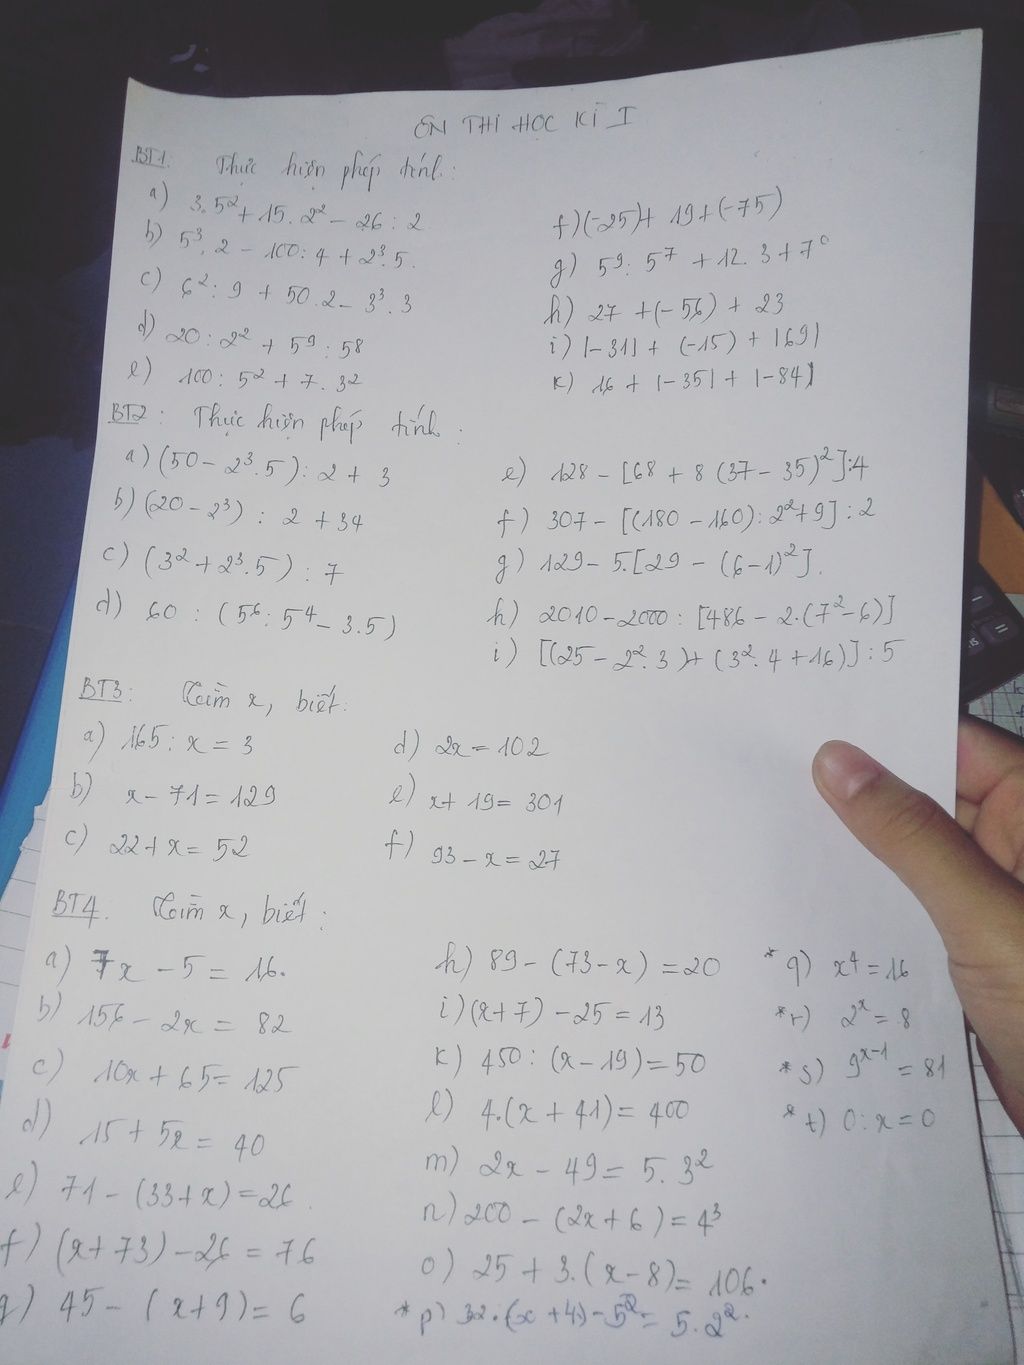 ÔN THI HỌC KÌ I
BT1: Thực hiện phép tính:
a) 3.5² + 15.2² - 26 : 2
b) 5³.2 - 100 : 4 + 2³.5.
c) 6² : 9 + 50.2 - 3³.3
d) 20 : 2² + 5⁹ : 58
e) 100 : 5² + 7.3²
f) (-25) + 19 + (-75)
g) 59 : 5⁷ + 12.3 + 7⁰
h) 27 + (-56) + 23
i) |-31| + (-15) + |69|
k) 16 + |-35| + |-84|
BT2: Thực hiện phép tính:
a) (50 - 2³.5) : 2 + 3
b) (20 - 2³) : 2 + 34
c) (3² + 2³.5) : 7
d) 60 : (5⁶ : 5⁴ - 3.5)
e) 128 - [68 + 8 (37 - 35)²] : 4
f) 307 - [(180 - 160) : 2² + 9] : 2
g) 129 - 5.[29 - (6 - 1)²].
h) 2010 - 2000 : [486 - 2.(7² - 6)]
i) [(25 - 2².3) + (3².4 + 16)] : 5
BT3: Tìm x, biết:
a) 165 : x = 3
b) x - 71 = 129
c) 22 + x = 52
d) 2x = 102
e) x + 19 = 301
f) 93 - x = 27
BT4. Tìm x, biết:
a) 7x - 5 = 16.
b) 156 - 2x = 82
c) 10x + 65 = 125
d) 15 + 5x = 40
e) 71 - (33 + x) = 26.
f) (x + 73) - 26 = 76
g) 45 - (x + 9) = 6
h) 89 - (73 - x) = 20
i) (x + 7) - 25 = 13
k) 450 : (x - 19) = 50
l) 4.(x + 41) = 400
m) 2x - 49 = 5.3²
n) 200 - (2x + 6) = 4³
o) 25 + 3.(x - 8) = 106.
* p) 32.(x + 4) - 5² = 5.2².
* q) x⁴ = 16
* r) 2ˣ = 8
* s) 9ˣ⁻¹ = 81
* t) 0 : x = 0